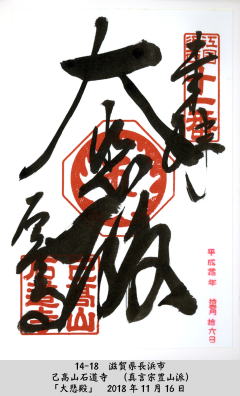 奉拝
大悲殿
石道寺
己高山
平成30年 拾壱月 拾六日
14-18　滋賀県長浜市
己高山石道寺　（真言宗豊山派）
「大悲殿」　2018年11月16日